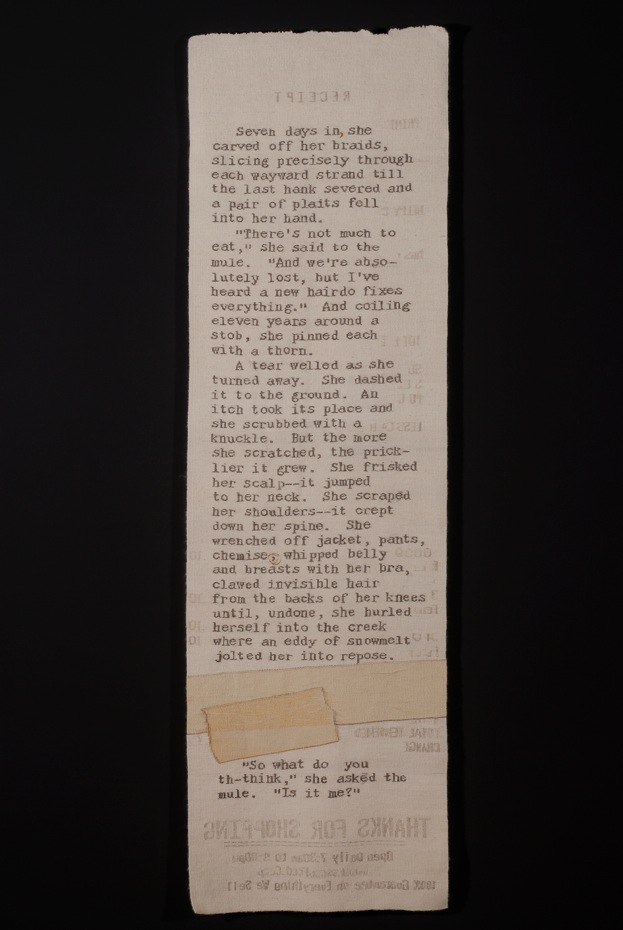 RECEIPT
Seven days in, she
carved off her braids,
slicing precisely through
each wayward strand till
the last hank severed and
a pair of plaits fell
into her hand.
"There's not much to
eat," she said to the
mule. "And we're abso-
lutely lost, but I've
heard a new hairdo fixes
everything." And coiling
eleven years around a
stob, she pinned each
with a thorn.
A tear welled as she
turned away. She dashed
it to the ground. An
itch took its place and
she scrubbed with a
knuckle. But the more
she scratched, the prick-
lier it grew. She frisked
her scalp--it jumped
to her neck. She scraped
her shoulders--it crept
down her spine. She
wrenched off jacket, pants,
chemise, whipped belly
and breasts with her bra,
clawed invisible hair
from the backs of her knees
until, undone, she hurled
herself into the creek
where an eddy of snowmelt
jolted her into repose.
TOTAL TENDERED
CHANGE
"So what do you
th-think," she asked the
mule. "Is it me?"
THANKS FOR SHOPPING
Open Daily 7:30am to
100% Guarantee on Everything We Sell